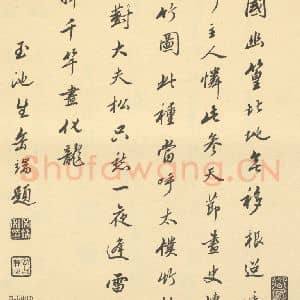 國幽篁此地無移根
主人憐此冬天節畫史
竹圖此種當呼太僕竹
對大夫松只愁一夜逢雪
千竿盡化龍
玉池生岳端題
Shufawang.CN